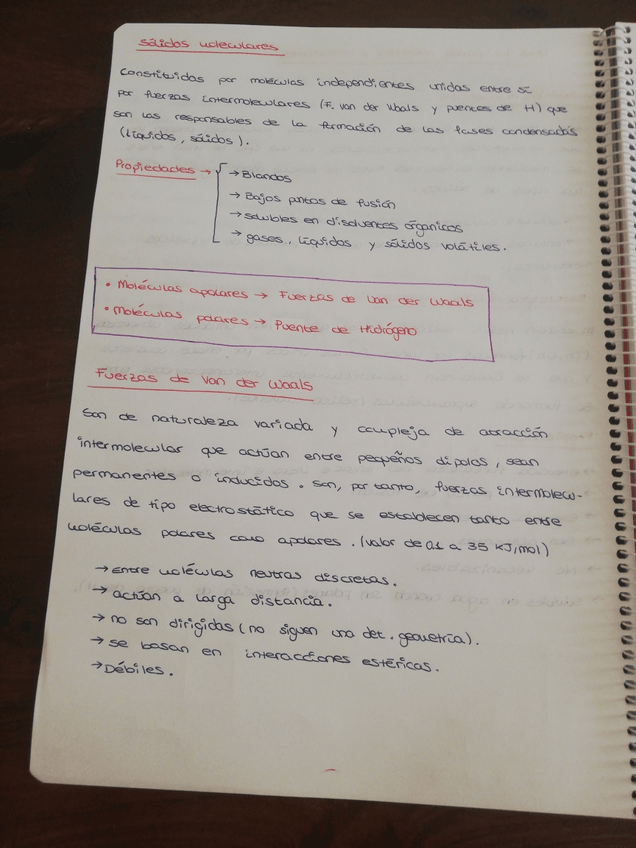 Sólidos moleculares
Constituidos por moléculas independientes unidas entre sí
por fuerzas intermoleculares (F. van der Waals y puentes de H) que
son las responsables de la formación de las fases condensadas
(líquidos, sólidos).
Propiedades → → Blandos
→ Bajos puntos de fusión
→ solubles en disolventes orgánicos
→ gases, líquidos y sólidos volátiles.
• Moléculas apolares → Fuerzas de Van der Waals
• Moléculas polares → Puente de Hidrógeno
Fuerzas de Van der Waals
Son de naturaleza variada y compleja de atracción
intermolecular que actúan entre pequeños dipolos, sean
permanentes o inducidos. Son, por tanto, fuerzas intermolecu-
lares de tipo electrostático que se establecen tanto entre
moléculas polares como apolares. (valor de 0.1 a 35 KJ/mol)
→ entre moléculas neutras discretas.
→ actúan a larga distancia.
→ no son dirigidas (no siguen una det. geometría).
→ se basan en interacciones estéricas.
→ Débiles.